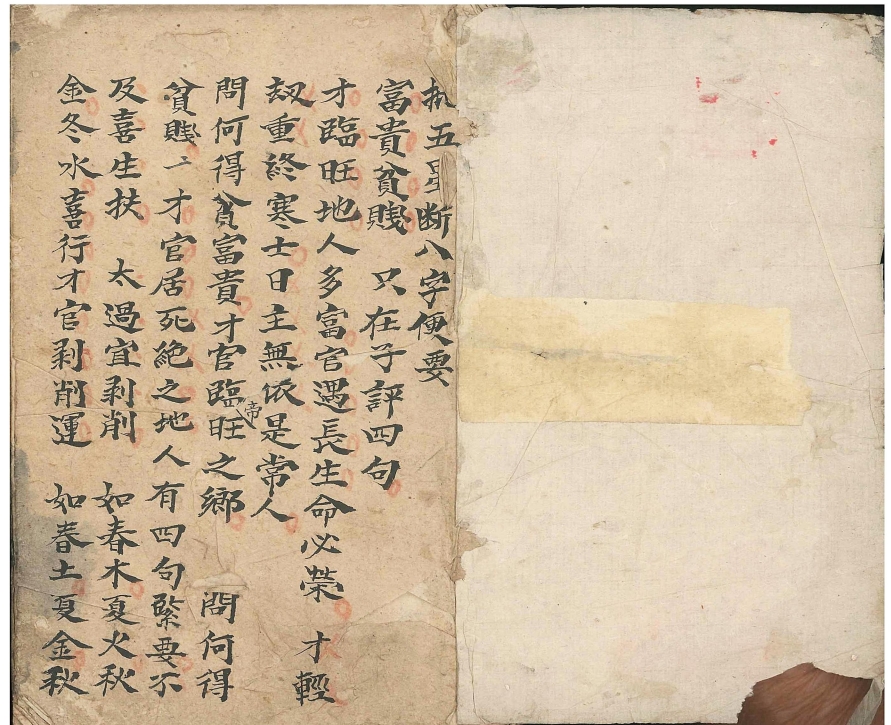 拾五星斷八字便要
富貴貧賤　只在子評四句
才臨旺地人多富官遇長生命必榮　才輕
劫重終寒士日主無依是常人
問何得貧富貴才官臨帝旺之鄉　問何得
貧賤〻才官居死絶之地人有四句緊要不
及喜生扶　太過宜剥削　如春木夏火秋
金冬水喜行才官剥削運　如春土夏金秋